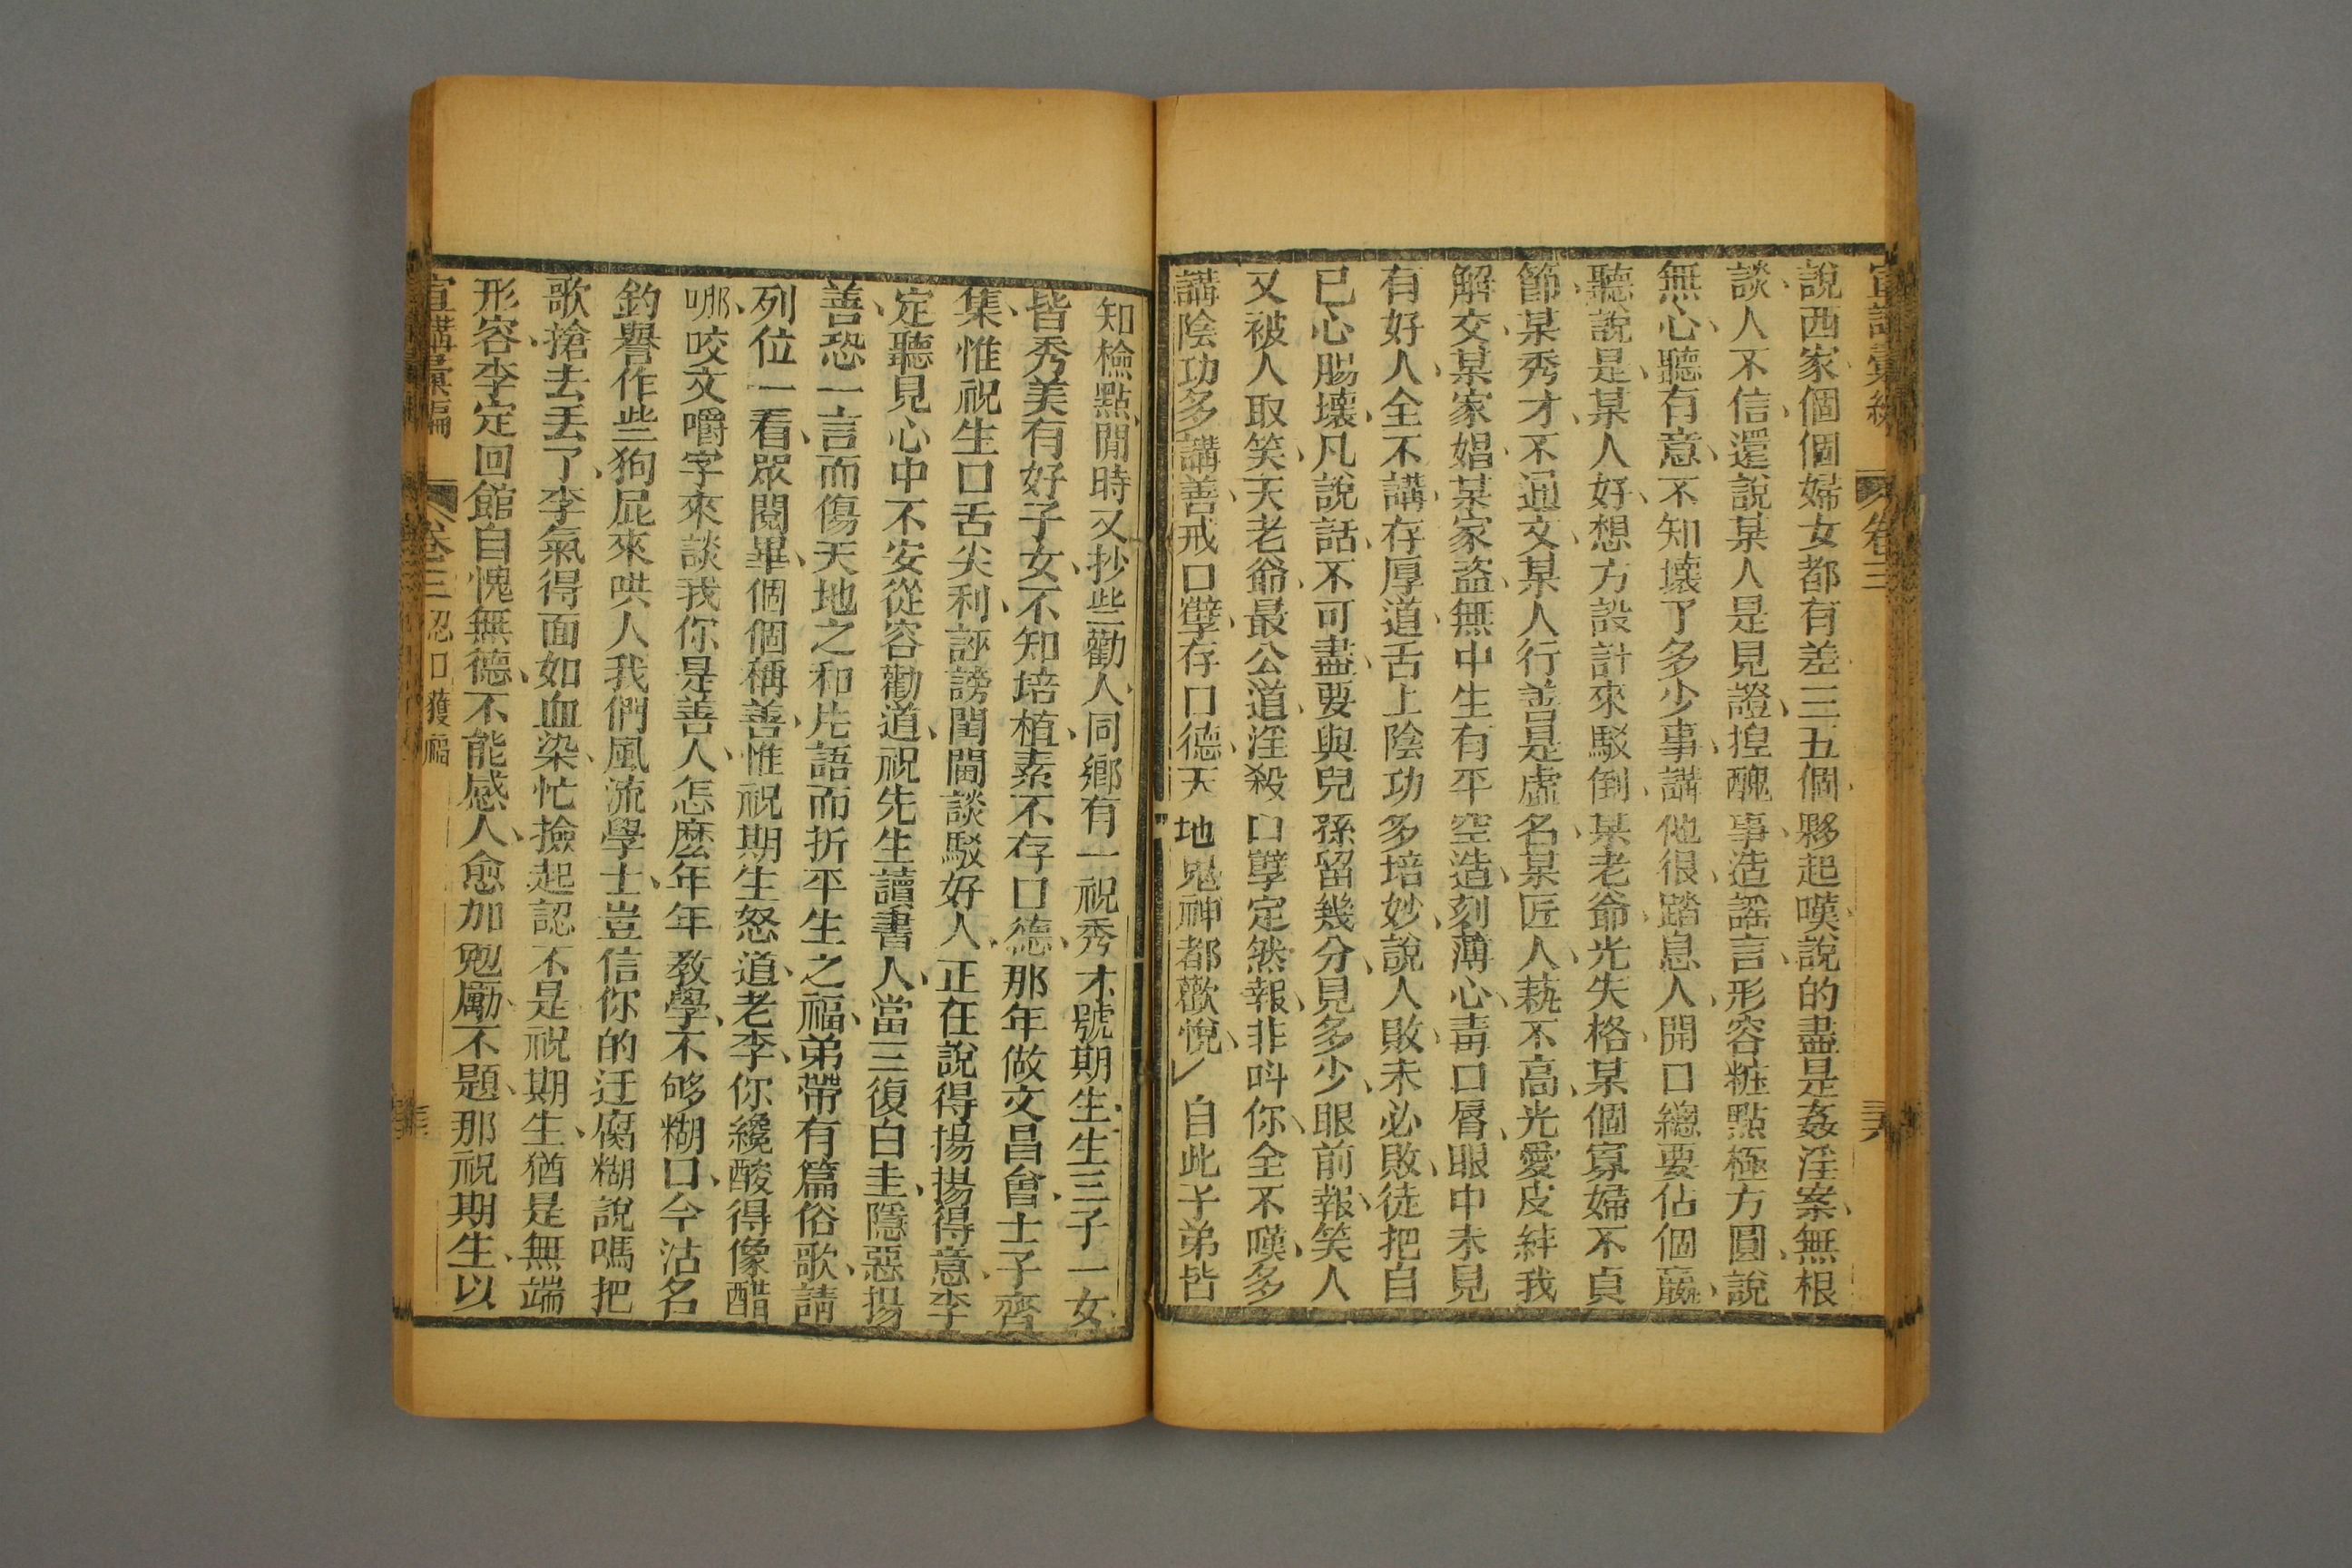 宣講彙編 卷三 三六
說西家個個婦女都有差三五個夥起嘆說的盡是姦淫案無根
談人不信還說某人是見證揑醜事造謠言形容粧點極方圓說
無心聽有意不知壞了多少事講他很踏息人開口總要佔個贏
聽說是某人好想方設計來駁倒某老爺光失格某個寡婦不貞
節某秀才不通文某人行善是虛名某匠人藝不高光愛皮絆我
解交某家娼某家盜無中生有平空造刻薄心毒口唇眼中未見
有好人全不講存厚道舌上陰功多培妙說人敗未必敗徒把自
已心腸壞凡說話不可盡要與兒孫留幾分見多少眼前報笑人
又被人取笑天老爺最公道淫殺口孽定然報非呌你全不嘆多
講陰功多講善戒口孽存口德天地鬼神都歡悅 自此子弟皆
知檢點閒時又抄些勸人同鄉有一祝秀才號期生生三子一女
皆秀美有好子女不知培植素不存口德那年做文昌會士子齊
集惟祝生口舌尖利誣謗閨閫談駁好人正在說得揚揚得意李
定聽見心中不安從容勸道祝先生讀書人當三復白圭隱惡揚
善恐一言而傷天地之和片語而折平生之福弟帶有篇俗歌請
列位一看眾閱畢個個稱善惟祝期生怒道老李你纔酸得像醋
哪咬文嚼字來談我你是善人怎麽年年教學不够糊口今沽名
釣譽作些狗屁來哄人我們風流學士豈信你的迂腐糊說嗎把
歌搶去丟了李氣得面如血染忙撿起認不是祝期生猶是無端
形容李定回館自愧無德不能感人愈加勉勵不題那祝期生以
宣講彙編 卷三 忍口獲福